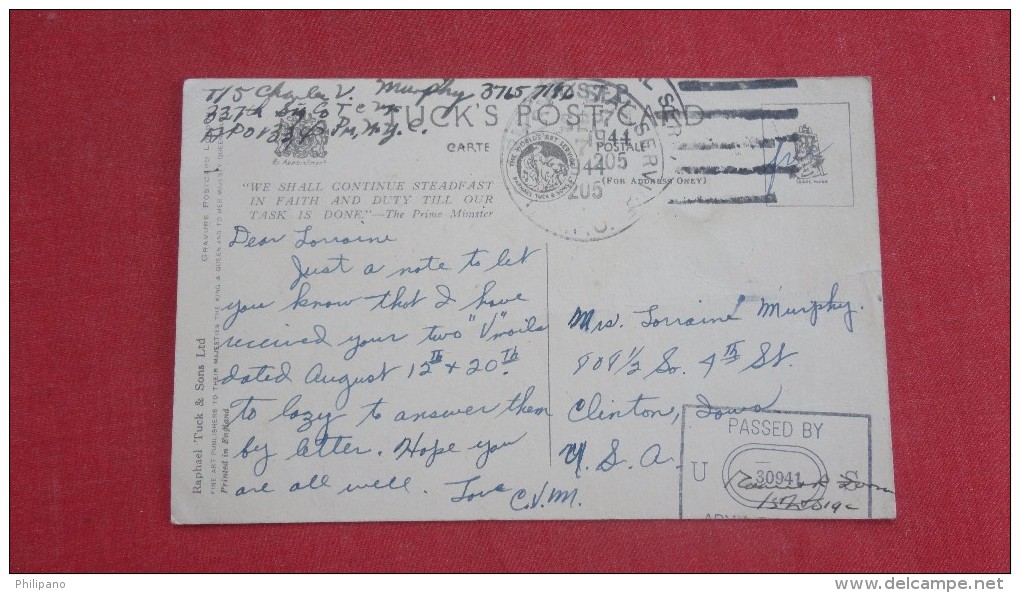 T/5 Charles V. Murphy
327th Sig Co
TUCK'S POST CARD
CARTE POSTALE
By Appointment
(FOR ADDRESS ONLY)
THE WORLD'S ART SERVICE
RAPHAEL TUCK & SONS LTD
1944
205
1944
205
"WE SHALL CONTINUE STEADFAST
IN FAITH AND DUTY TILL OUR
TASK IS DONE."—The Prime Minister
Dear Lorraine
Just a note to let
you know that I have
received your two "V" mails
dated August 12th + 20th.
to lazy to answer them
by letter. Hope you
are all well. Love
C.V.M.
Mrs. Lorraine Murphy.
809 1/2 So. 4th St.
Clinton, Iowa
U. S. A.
PASSED BY
U 30941 S
Raphael Tuck & Sons Ltd
FINE ART PUBLISHERS TO THEIR MAJESTIES THE KING & QUEEN AND TO HER MAJESTY QUEEN
Printed in England
GRAVURE POSTCARD
Philipano
www.delcampe.net